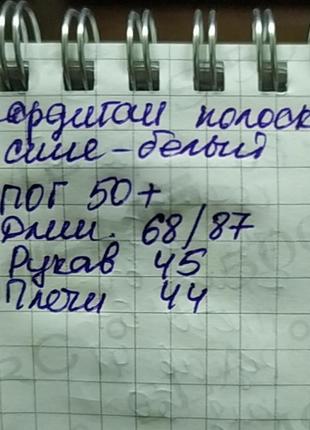 полоск
сине-белый
ПОГ 50+
Длин. 68/87
Рукав 45
Плечи 44